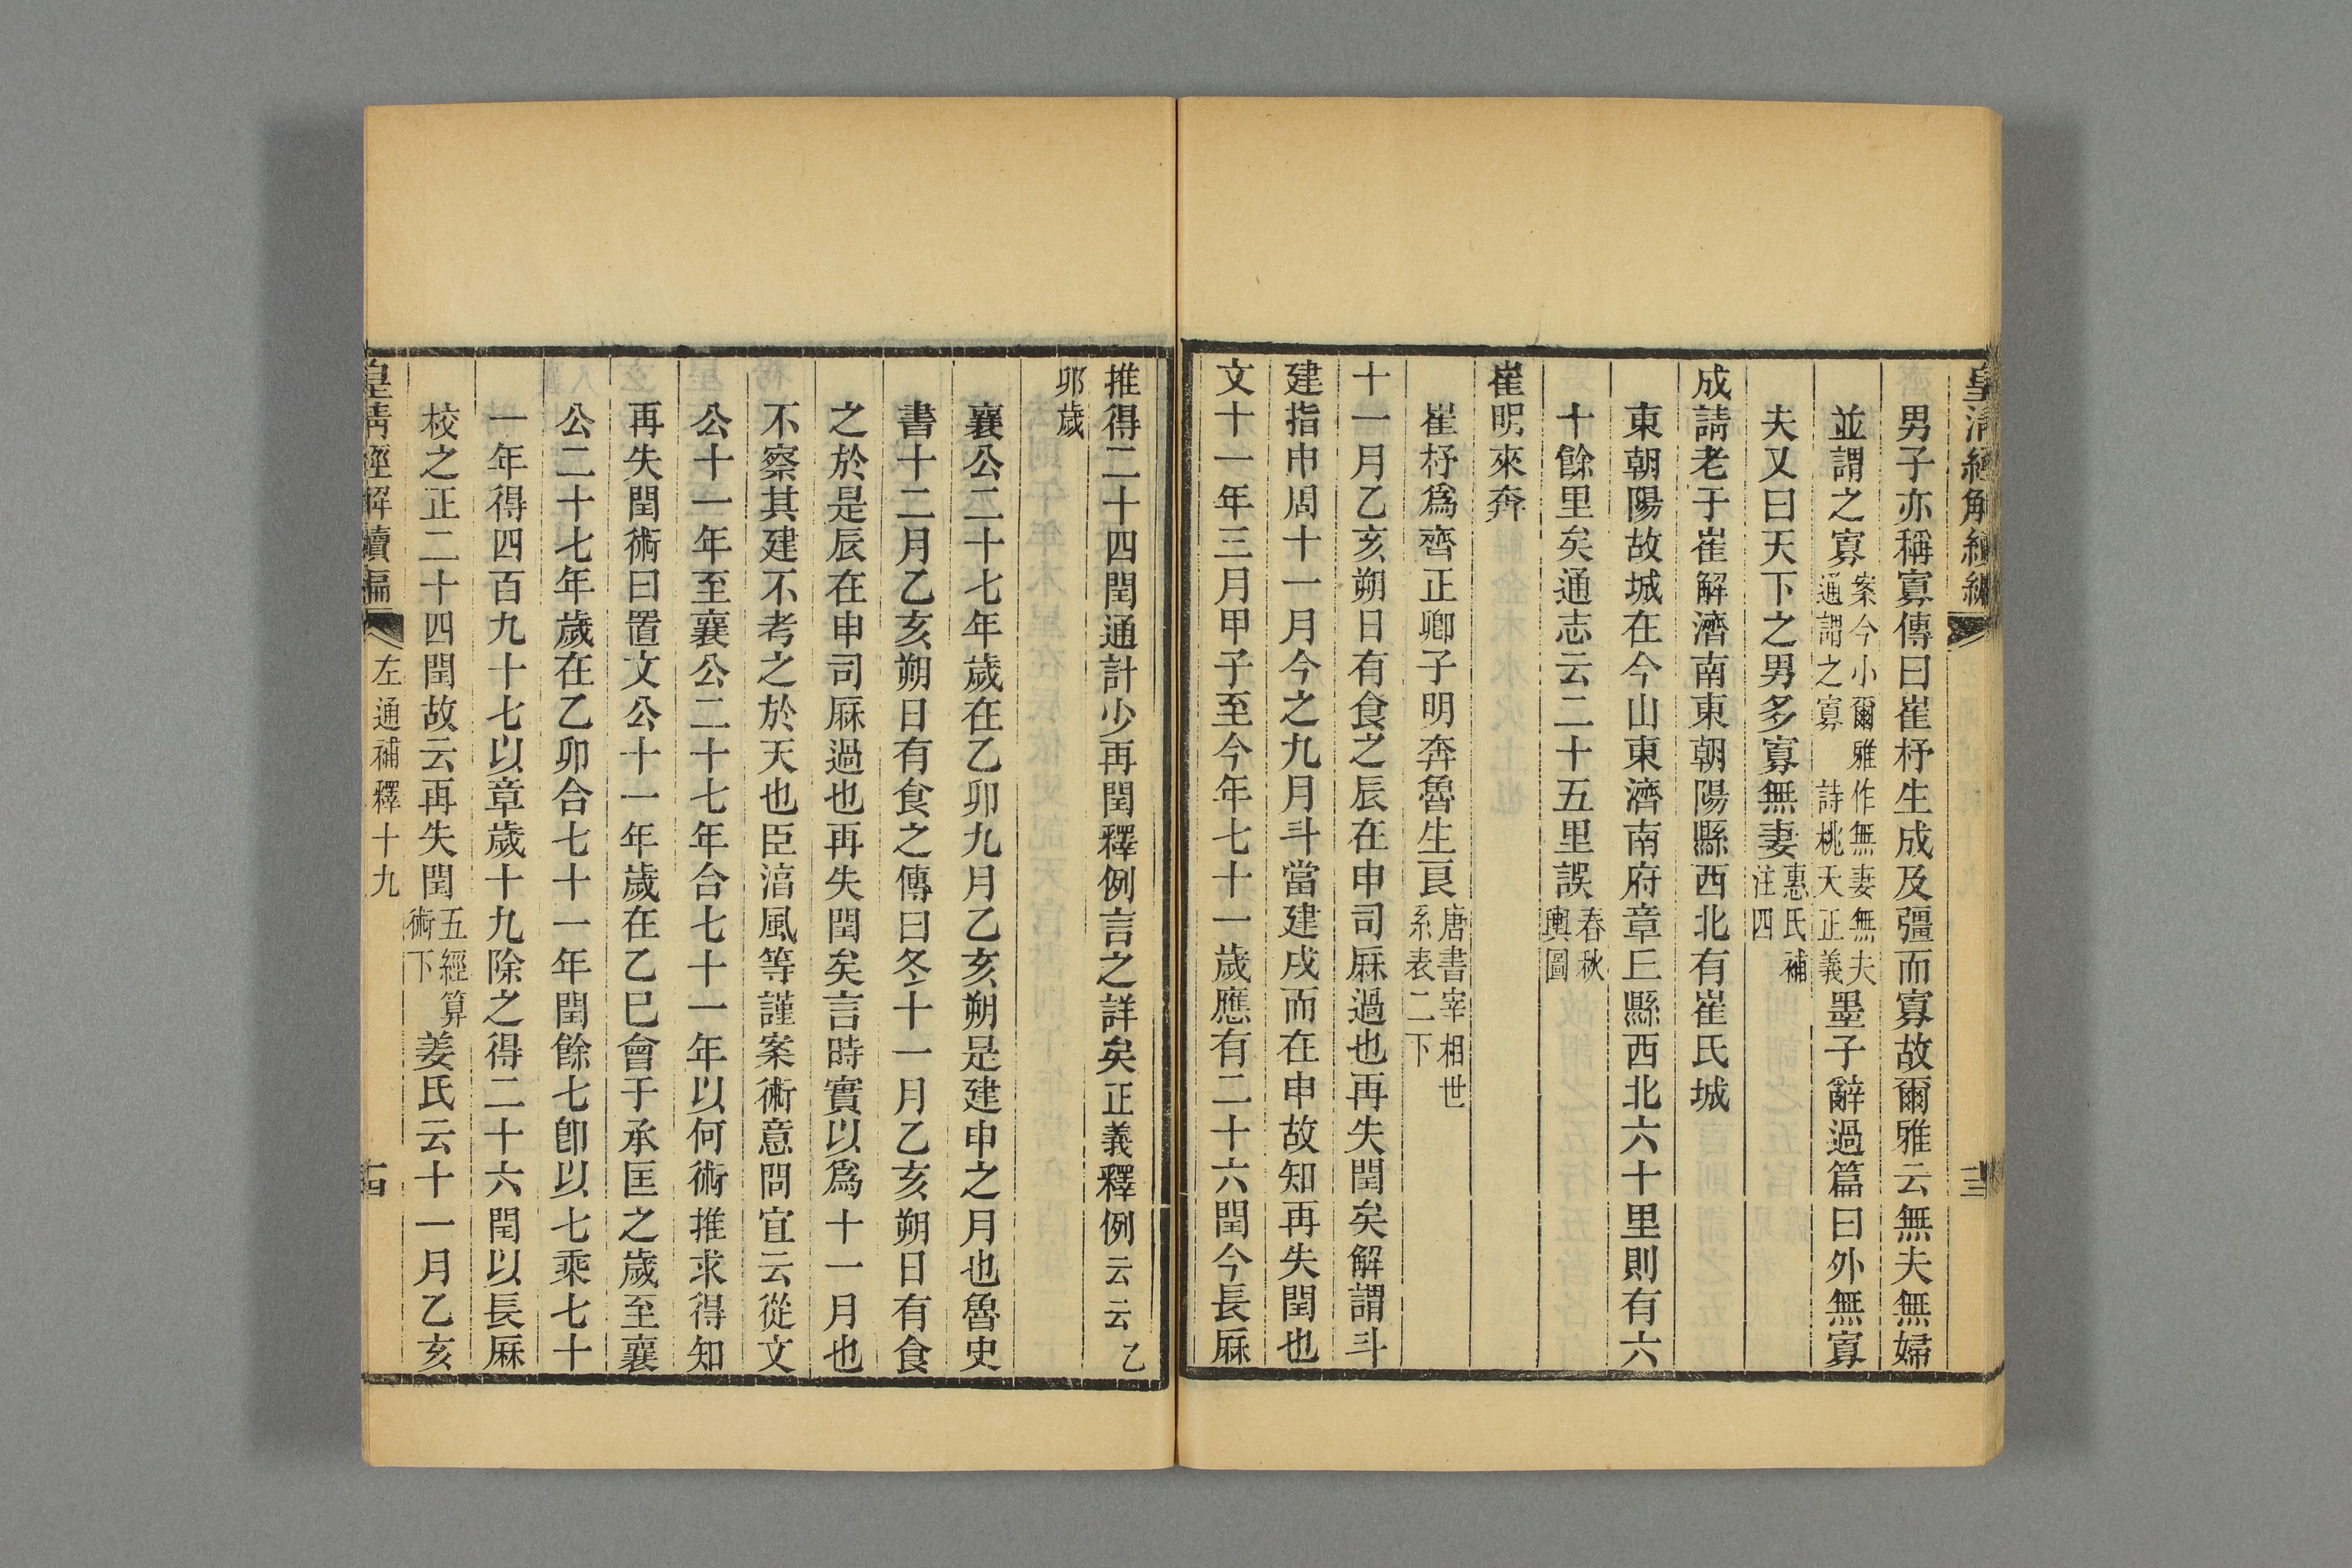 皇清經解續編
十三
男子亦稱寡傳曰崔杼生成及彊而寡故爾雅云無夫無婦
並謂之寡案今小爾雅作無妻無夫通謂之寡詩桃夭正義墨子辭過篇曰外無寡
夫又曰天下之男多寡無妻惠氏補注四
成請老于崔解濟南東朝陽縣西北有崔氏城
東朝陽故城在今山東濟南府章丘縣西北六十里則有六
十餘里矣通志云二十五里誤春秋輿圖
崔明來奔
崔杼爲齊正卿子明奔魯生良唐書宰相世系表二下
十一月乙亥朔日有食之辰在申司厤過也再失閏矣解謂斗
建指申周十一月今之九月斗當建戌而在申故知再失閏也
文十一年三月甲子至今年七十一歲應有二十六閏今長厤
推得二十四閏通計少再閏釋例言之詳矣正義釋例云云乙
卯歲
襄公二十七年歲在乙卯九月乙亥朔是建申之月也魯史
書十二月乙亥朔日有食之傳曰冬十一月乙亥朔日有食
之於是辰在申司厤過也再失閏矣言時實以爲十一月也
不察其建不考之於天也臣湻風等謹案術意問宜云從文
公十一年至襄公二十七年合七十一年以何術推求得知
再失閏術曰置文公十一年歲在乙巳會于承匡之歲至襄
公二十七年歲在乙卯合七十一年閏餘七卽以七乘七十
一年得四百九十七以章歲十九除之得二十六閏以長厤
校之正二十四閏故云再失閏五經算術下姜氏云十一月乙亥
皇清經解續編
左通補釋十九
十四